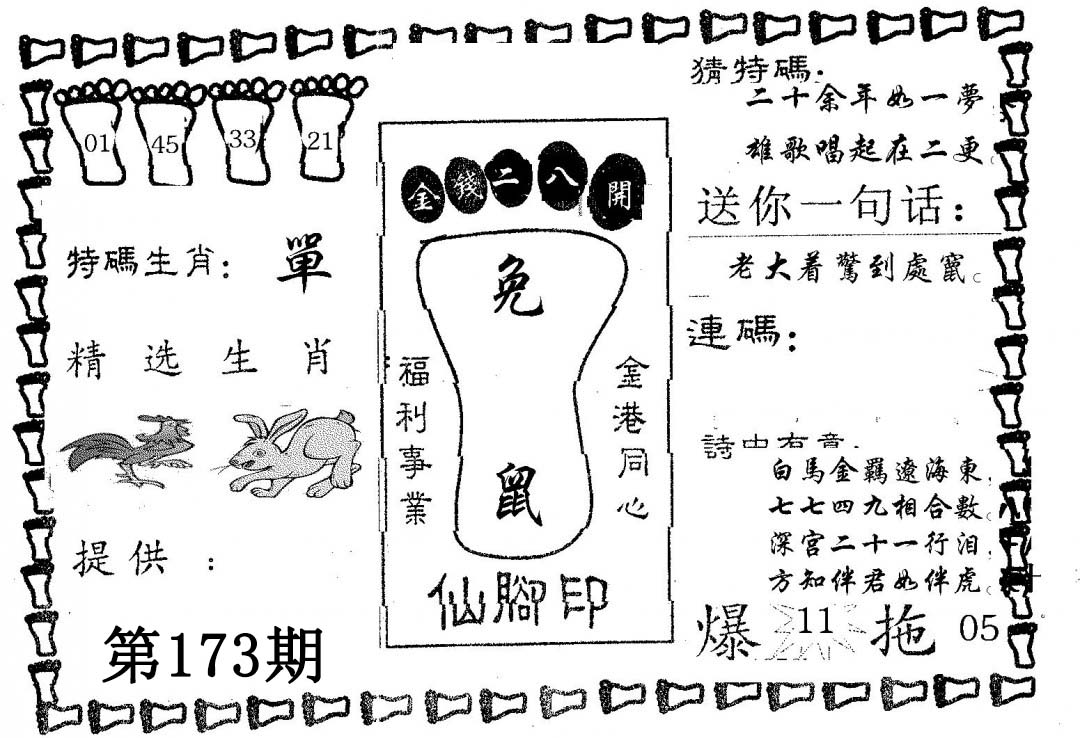 01 45 33 21
特碼生肖：單
精选生肖
提供：
第173期
金錢二八開
兔
鼠
福利事業
金港同心
仙腳印
猜特碼：
二十余年如一夢
雄歌唱起在二更。
送你一句话：
老大着驚到處竄。
連碼：
詩中有意：
白馬金羈遼海東，
七七四九相合數。
深宮二十一行泪，
方知伴君如伴虎。
爆 11 拖 05